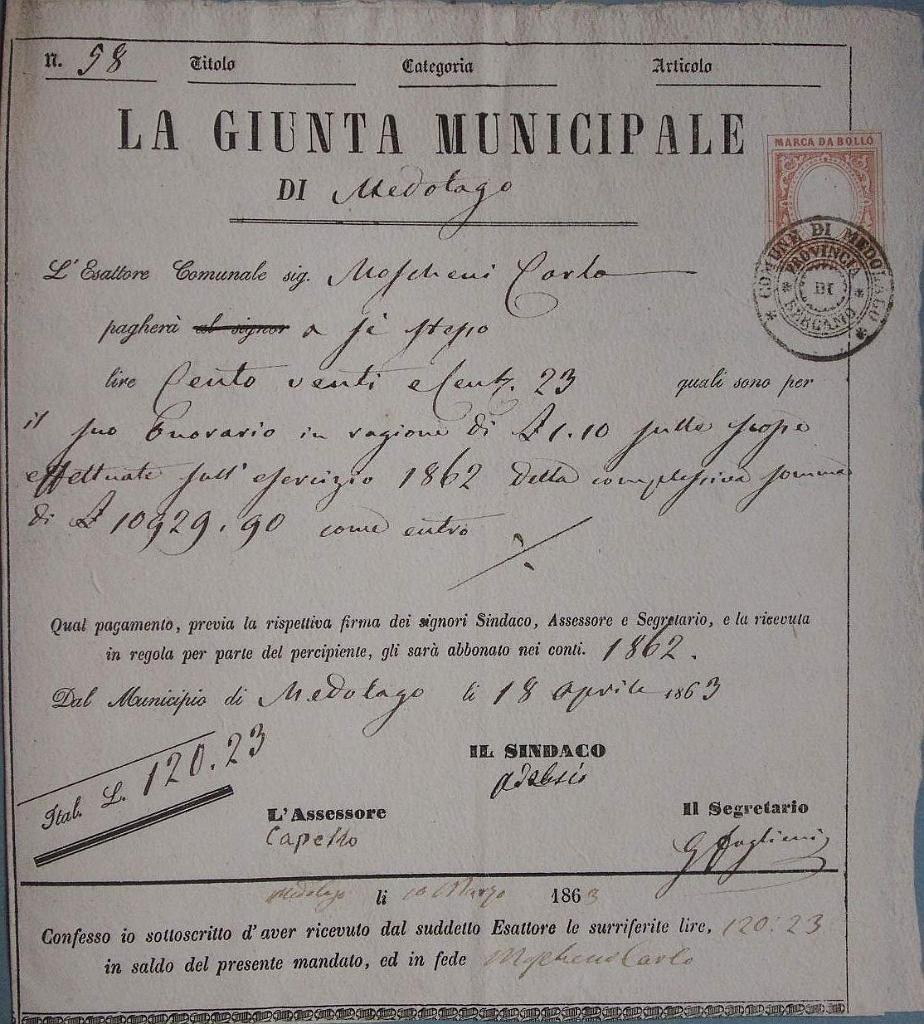 N. 58 Titolo Categoria Articolo
LA GIUNTA MUNICIPALE
DI Medolago
MARCA DA BOLLO
COMUNE DI MEDOLAGO
PROVINCIA DI BERGAMO
L'Esattore Comunale sig. Moscheni Carlo
pagherà al signor a sè stesso
lire Cento venti e Cent. 23 quali sono per
il suo Onorario in ragione di £ 1.10 sulle spese
effettuate sull' esercizio 1862 della complessiva somma
di £ 10929.90 come entro
Qual pagamento, previa la rispettiva firma dei signori Sindaco, Assessore e Segretario, e la ricevuta
in regola per parte del percipiente, gli sarà abbonato nei conti. 1862.
Dal Municipio di Medolago li 18 Aprile 1863
Ital. L. 120.23
IL SINDACO
L'Assessore
Il Segretario
Medolago li Marzo 1863
Confesso io sottoscritto d'aver ricevuto dal suddetto Esattore le surriferite lire, 120:23
in saldo del presente mandato, ed in fede Moscheni Carlo